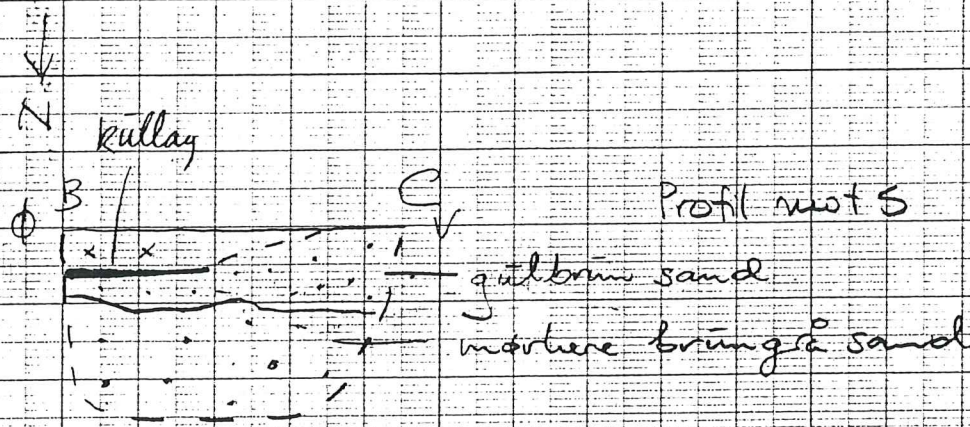 N
kullag
B C
Profil mot S
gulbrun sand
mørkere brungrå sand